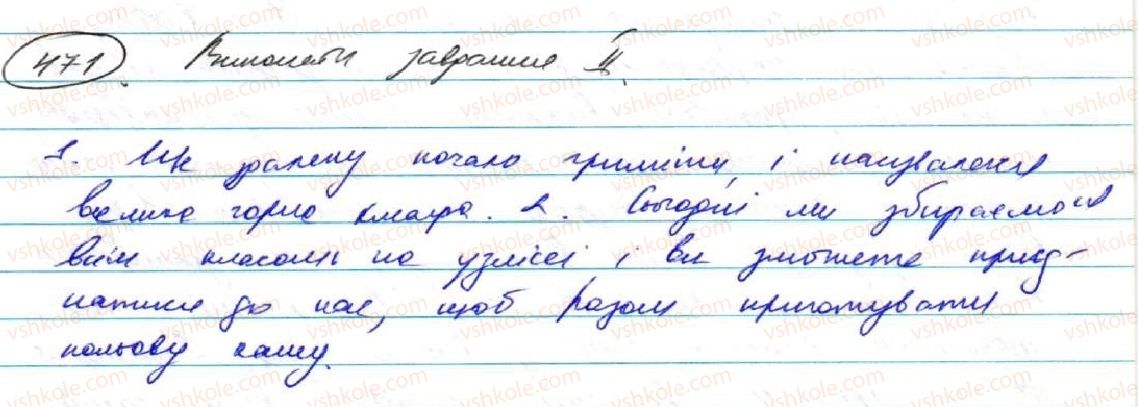 471. Виконати завдання ІІ.
1. Ще здалеку почало гриміти, і насувалася
велика чорна хмара. 2. Сьогодні ми збираємося
всім класом на узліссі, і ви зможете приєд-
натися до нас, щоб разом приготувати
польову кашу.